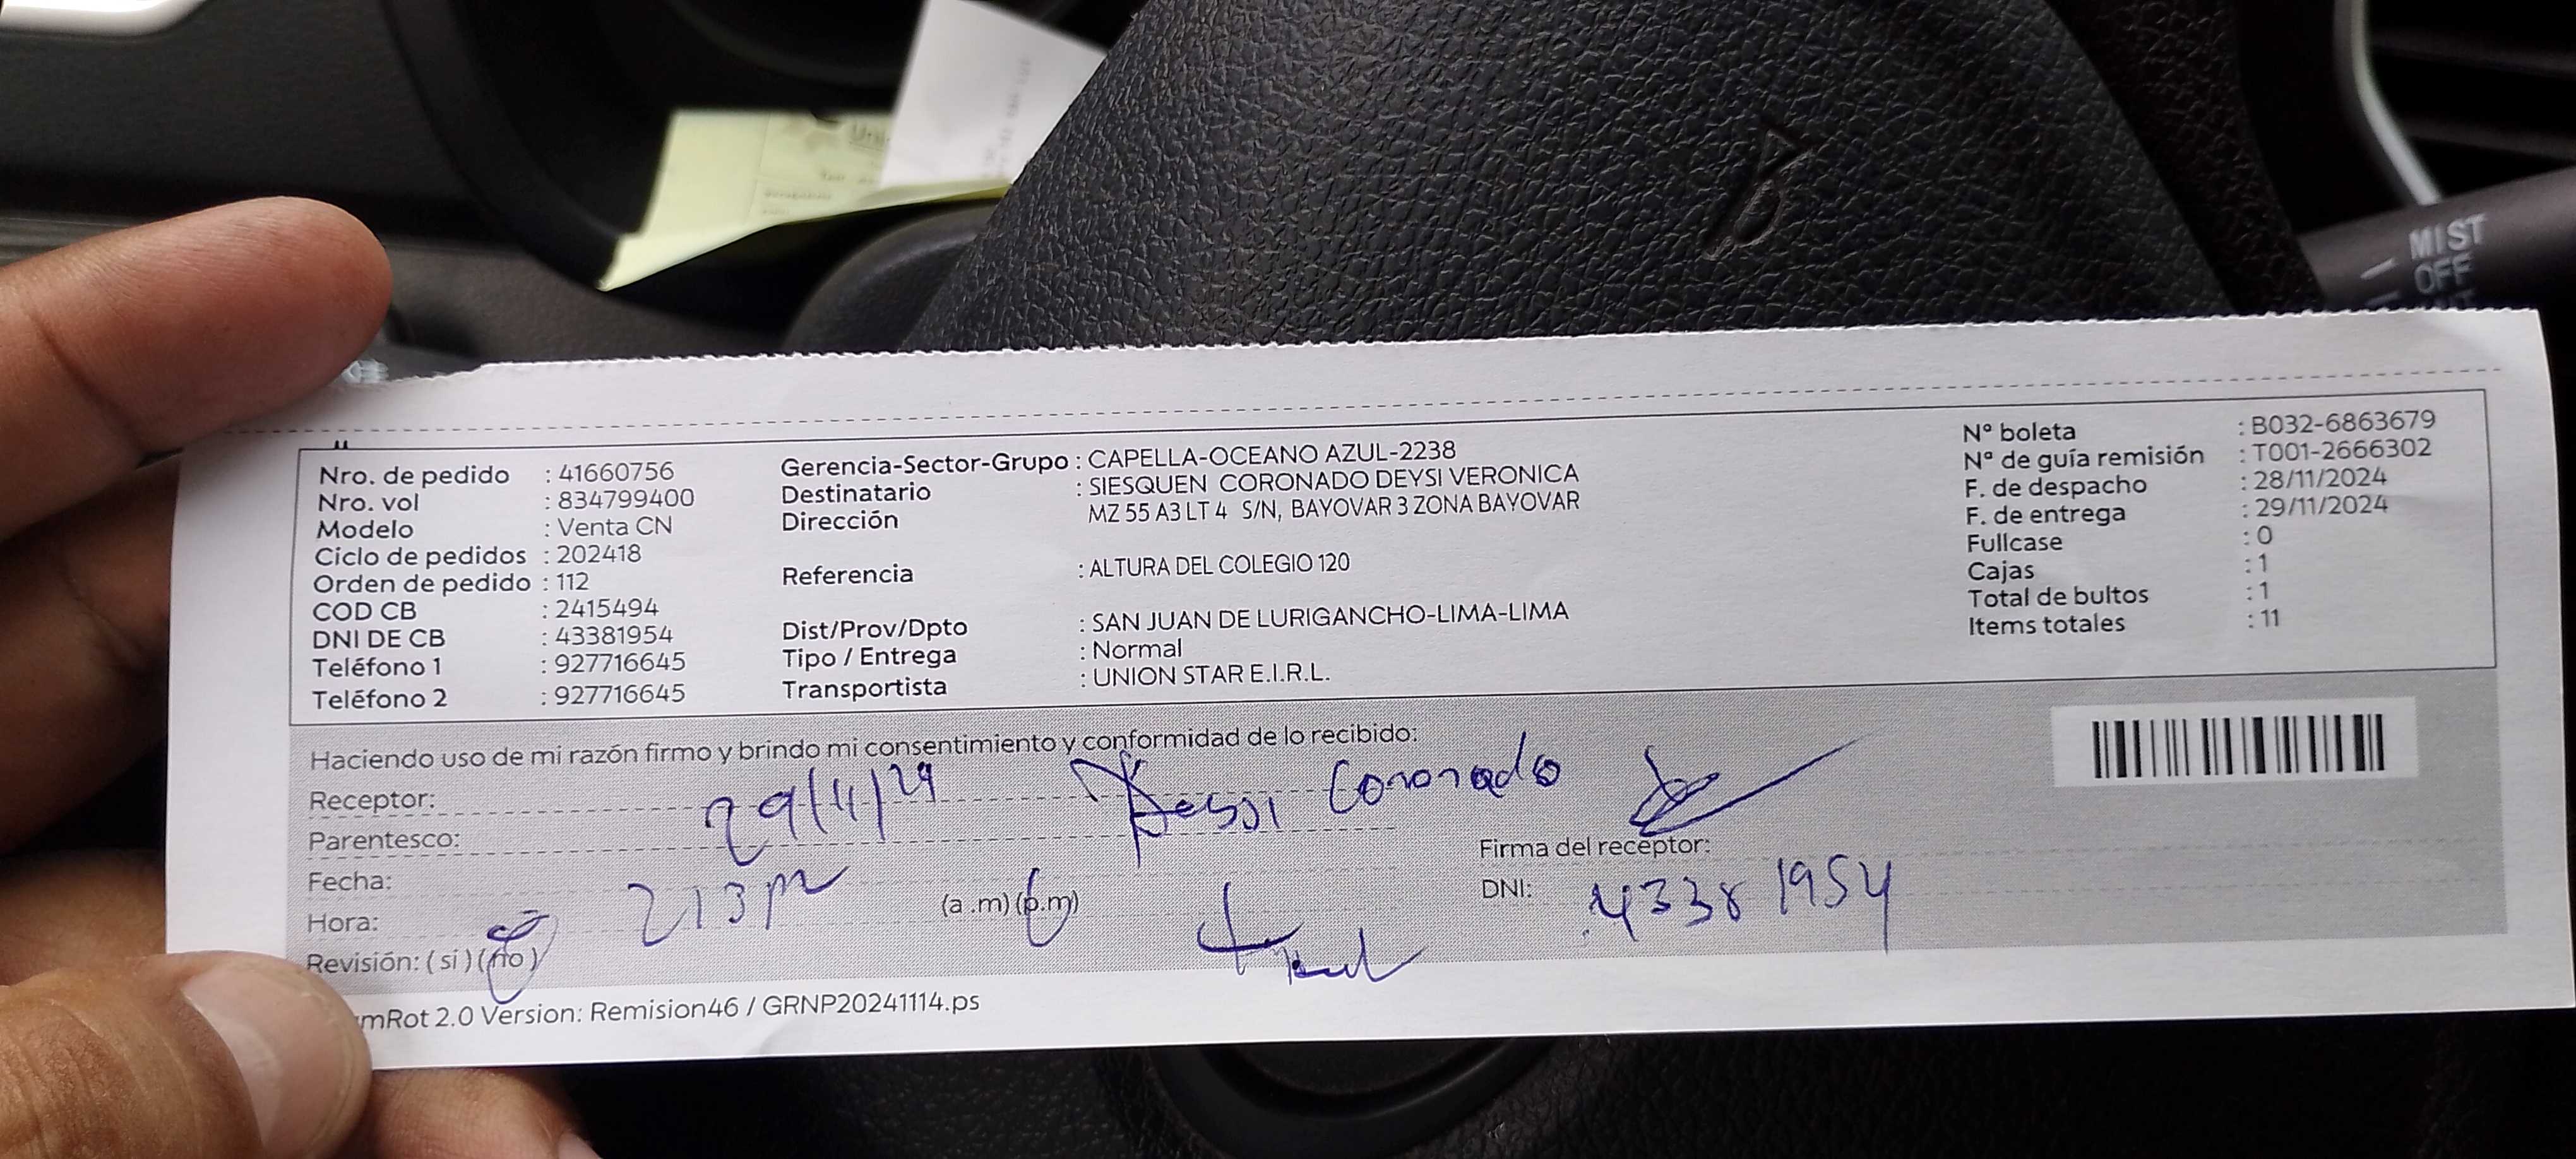 MIST
OFF
Nro. de pedido : 41660756
Nro. vol : 834799400
Modelo : Venta CN
Ciclo de pedidos : 202418
Orden de pedido : 112
COD CB : 2415494
DNI DE CB : 43381954
Teléfono 1 : 927716645
Teléfono 2 : 927716645
Gerencia-Sector-Grupo : CAPELLA-OCEANO AZUL-2238
Destinatario : SIESQUEN CORONADO DEYSI VERONICA
Dirección MZ 55 A3 LT 4 S/N, BAYOVAR 3 ZONA BAYOVAR
Referencia : ALTURA DEL COLEGIO 120
Dist/Prov/Dpto : SAN JUAN DE LURIGANCHO-LIMA-LIMA
Tipo / Entrega : Normal
Transportista : UNION STAR E.I.R.L.
Nº boleta : B032-6863679
Nª de guía remisión : T001-2666302
F. de despacho : 28/11/2024
F. de entrega : 29/11/2024
Fullcase : 0
Cajas : 1
Total de bultos : 1
Items totales : 11
Haciendo uso de mi razón firmo y brindo mi consentimiento y conformidad de lo recibido:
Receptor: 29/11/24 Coronado
Parentesco:
Firma del receptor:
Fecha:
Hora: 213 pm (a .m) (p.m)
DNI: 43381954
Revisión: ( si ) (no)
mRot 2.0 Version: Remision46 / GRNP20241114.ps